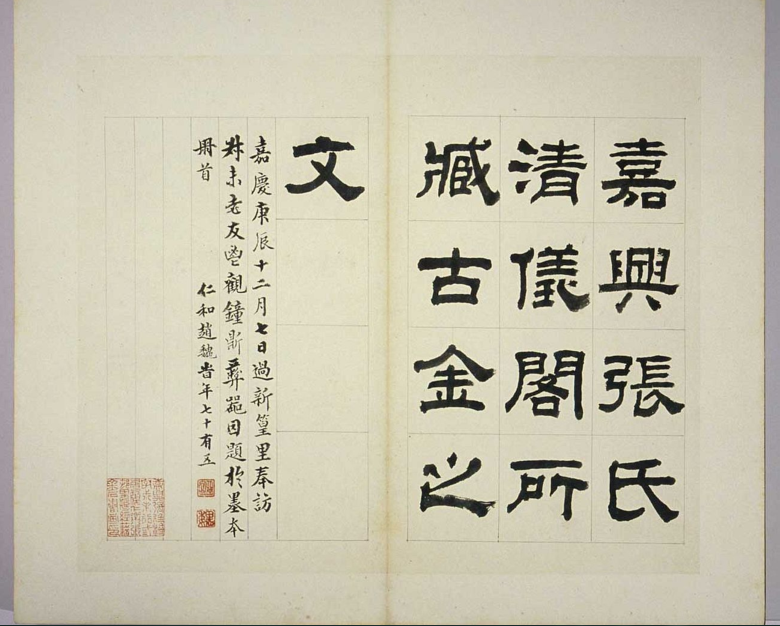 嘉興張氏
清儀閣所
藏古金之
文
嘉慶庚辰十二月七日過新篁里奉訪
叔未老友㽙觀鐘鼎彝器因題於墨本
冊首
仁和趙魏旹年七十有五